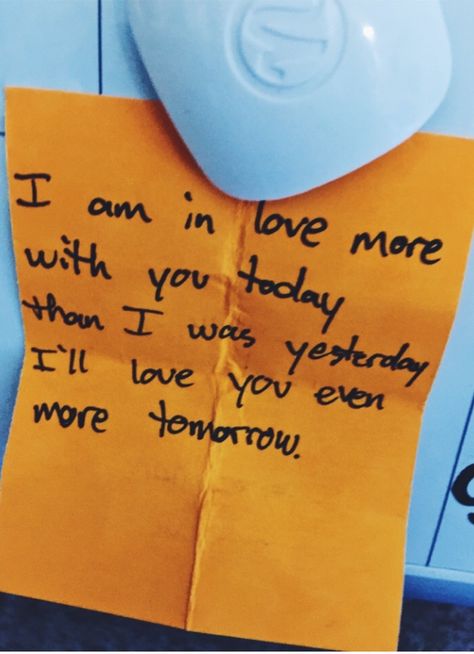 I am in love more
with you today
than I was yesterday
I'll love you even
more tomorrow.